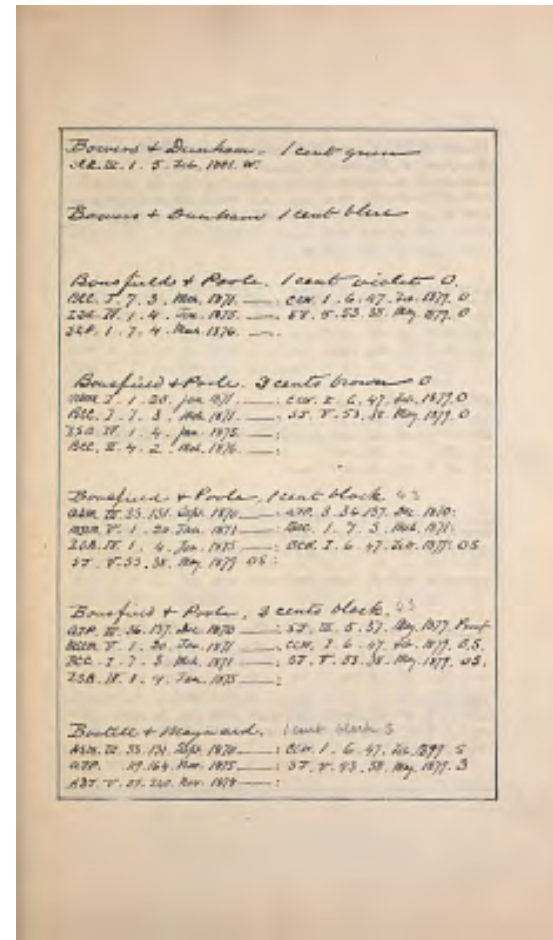 Bowers + Dunham. 1 cent green
AR. IV. 1. 5. Feb. 1881. W.
Bowers + Dunham 1 cent blue
Bousfields + Poole. 1 cent violet O.
BCC. I. 7. 3. Mch. 1871. —. CCN. 1. 6. 47. Feb. 1877. O
ISR. IV. 1. 4. Jan. 1875. —. ST. V. 53. 38. May 1879. O
1. 7. 4. Mch. 1876. —.
Bousfield + Poole. 3 cents brown O
I. 1. 20. Jan 1871. —. CCN. I. 6. 47. Feb. 1877. O
BCC. I. 7. 3. Mch. 1871. —. ST. V. 53. 38. May. 1879. O
IV. 1. 4. Jan. 1875. —:
BCC. II. 4. 2. Mch. 1876. —:
Bousfield + Poole, 1 cent black
ASM. IV. 33. 131. Sept. 1870 —. ATP. 3. 36. 137. Dec. 1870:
V. 1. 20. Jan. 1871 —. BCC. 1. 7. 3. Mch. 1871:
IV. 1. 4. Jan. 1875 —: CCN. I. 6. 47. Feb. 1877: OS
ST. V. 53. 38. May 1879 OS:
Bousfield + Poole, 3 cents black.
ATP. III. 36. 137. Dec. 1870 —: ST. III. 5. 37. May. 1877. Proof
V. 1. 20. Jan. 1871 —. CCN. I. 6. 47. Feb. 1877. O.S.
BCC. I. 7. 3 Mch. 1871 —: ST. V. 53. 38. May. 1879. OS.
IV. 1. 4. Jan. 1875 —:
+ Maynard. 1 cent black S
ASM. IV. 33. 131. Sept. 1870 —: CCN. 1. 6. 47. Feb. S
ATP. 164. Nov. 1875 —: ST. V. 53. 38. May. 1879. S
V. Nov. —: